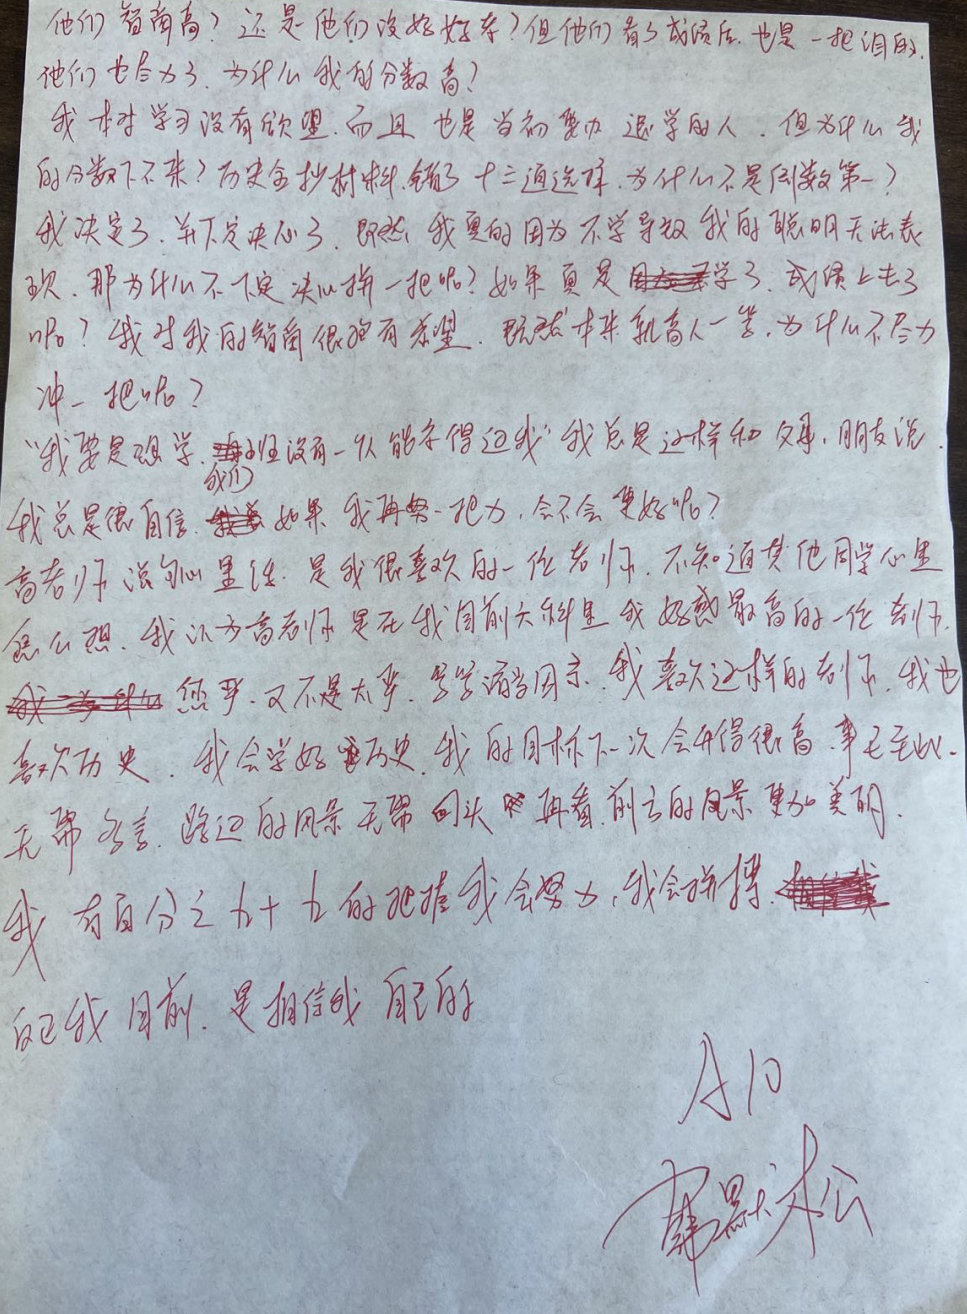 他们智商高？还是他们没好好考？但他们看了成绩后，也是一把泪的，
他们也尽力了，为什么我的分数高？
我本对学习没有欲望，而且也是当初要办退学的人，但为什么我
的分数下不来？历史全抄材料，错了十三道选择，为什么不是倒数第一？
我决定了，并下定决心了，既然我真的因为不学导致我的聪明无法表
现，那为什么不下定决心拼一把呢？如果真是学了，成绩上去了
呢？我对我的智商很抱有希望，既然本来就高人一等，为什么不尽力
冲一把呢？
"我要是想学，我们班没有一个人能考得过我"我总是这样和父母，朋友说，
我总是很自信，如果我再努一把力，会不会更好呢？
高老师说句心里话，是我很喜欢的一位老师，不知道其他同学心里
怎么想，我认为高老师是在我目前六科里我好感最高的一位老师，
您严，又不是太严，我喜欢这样的老师，我也
喜欢历史，我会学好历史，我的目标下一次会考得很高，事已至此，
无需多言，路边的风景无需回头再看，前方的风景更加美丽，
我有百分之九十九的把握我会努力，我会拼搏，
自己我目前，是相信我自己的
A10